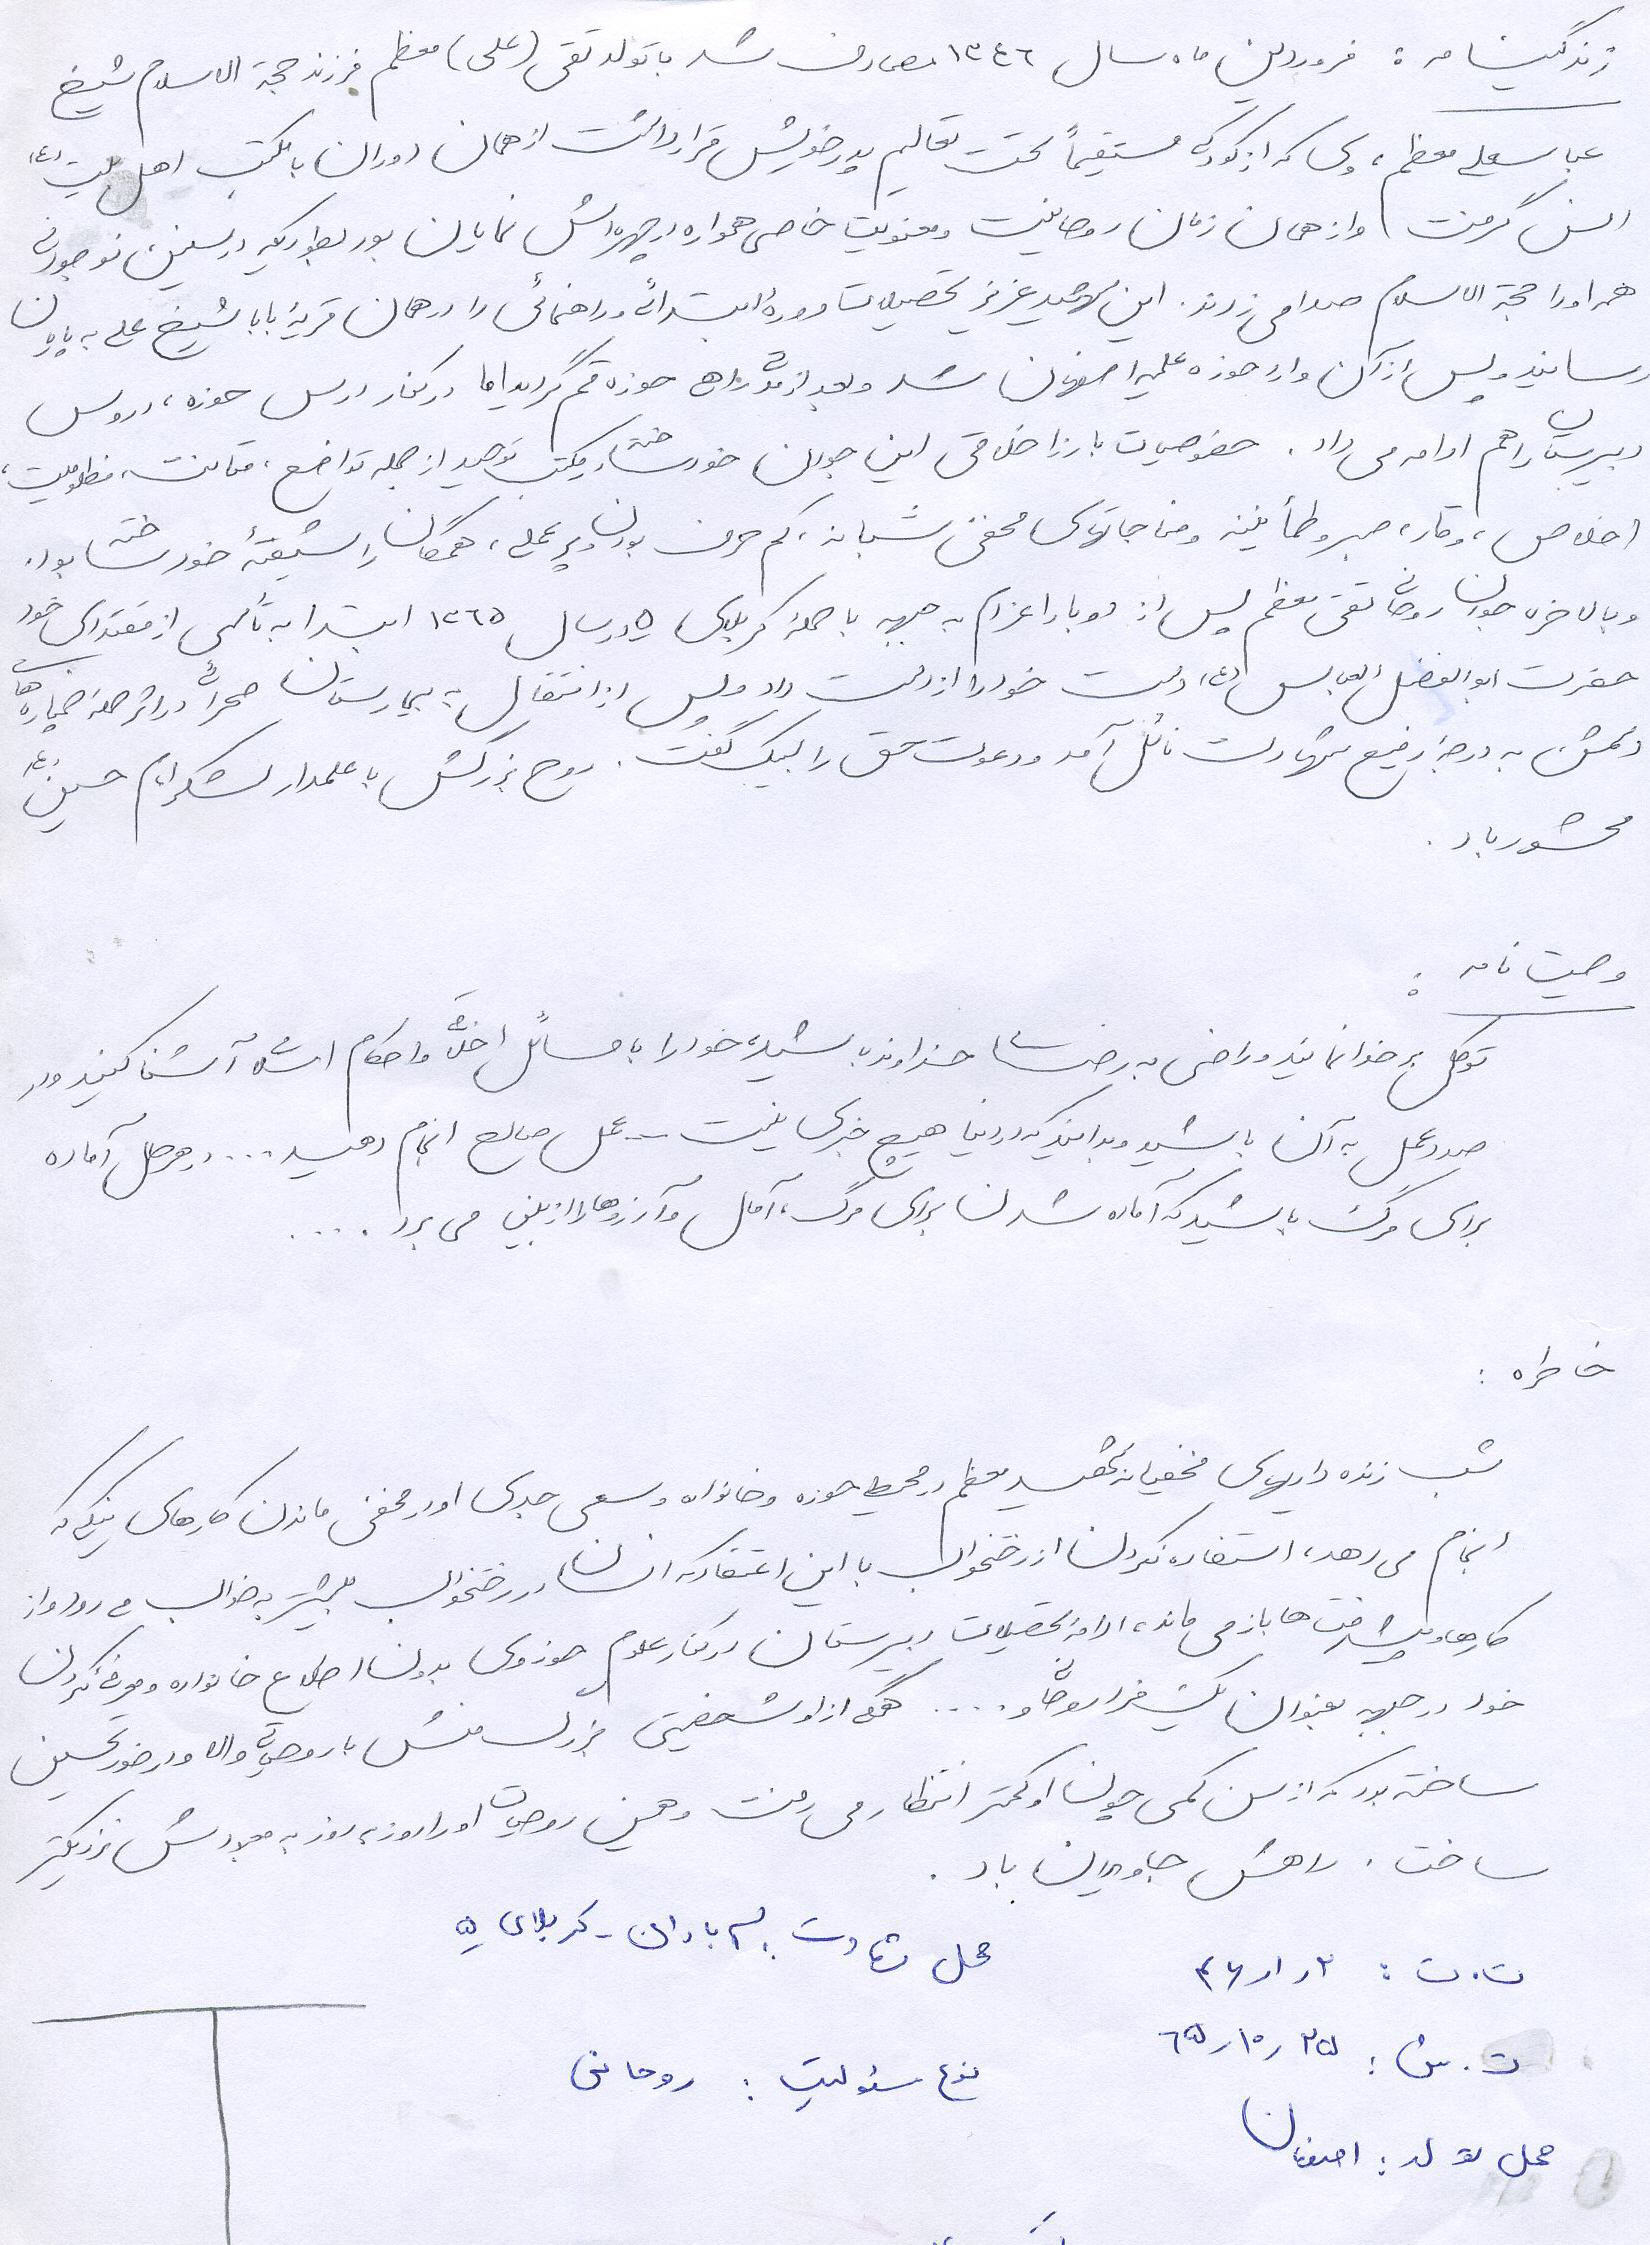 زندگینامه : فروردین ماه سال ١٣٤٦ مصادف شد با تولد تقی (علی) معظم فرزند حجة الاسلام شیخ
عباسعلی معظم، وی که از کودکی مستقیماً تحت تعالیم پدر خویش قرار داشت از همان دوران با مکتب اهل بیت (ع)
انس گرفت و از همان زمان روحانیت و معنویت خاصی همواره در چهره اش نمایان بود بطوریکه در سنین نوجوانی
همه او را حجة الاسلام صدا می زدند. این شهید عزیز تحصیلات دورۀ ابتدائی و راهنمائی را در همان قریۀ بابا شیخ علی به پایان
رسانید و پس از آن وارد حوزه علمیه اصفهان شد و بعد از مدتی راهی حوزه قم گردید اما در کنار درس حوزه، دروس
دبیرستان را هم ادامه می داد. خصوصیات بارز اخلاقی این جوان خودساخته مکتب توحید از جمله تواضع، متانت، مظلومیت،
اخلاص، وقار، صبر و طمأنینه و مناجاتهای مخفی شبانه، کم حرف بودن و پر عملی، همگان را شیفتۀ خود ساخته بود.
و بالاخره جوان روحانی تقی معظم پس از دو بار اعزام به جبهه با حملۀ کربلای ۵ در سال ١٣٦٥ ابتدا به تأسی از مقتدای خود
حضرت ابوالفضل العباس (ع) دست خود را از دست داد و پس از انتقال به بیمارستان صحرائی در اثر حملۀ خمپاره های
دشمن به درجۀ رفیع شهادت نائل آمد و دعوت حق را لبیک گفت. روح بزرگش با علمدار لشکر امام حسین (ع)
محشور باد.
وصیت نامه :
توکل بر خدا نمایید و راضی به رضای خداوند باشید، خود را با مسائل اخلاقی و احکام اسلامی آشنا کنید و در
صدد عمل به آن باشید و بدانید که در دنیا هیچ خبری نیست - عمل صالح انجام دهید .... در هر حال آماده
برای مرگ باشید که آماده شدن برای مرگ، آمال و آرزوها را از بین می برد ....
خاطره :
شب زنده داریهای مخفیانه شهید معظم در محیط حوزه و خانواده و سعی جدی او در مخفی ماندن کارهای نیکی که
انجام می دهد، استفاده نکردن از رختخواب با این اعتقاد که انسان در رختخواب بیشتر به خواب می رود و از
کارها و پیشرفت ها باز می ماند، ادامۀ تحصیلات دبیرستان در کنار علوم حوزوی بدون اطلاع خانواده و معرفی نکردن
خود در جبهه بعنوان یک فرد روحانی و .... همگی از او شخصیتی بزرگ منش با روحیاتی والا و در خور تحسین
ساخته بود که از سن کمی چون او کمتر انتظار می رفت و همین روحیات او را روز به روز به معبودش نزدیکتر
ساخت. راهش جاویدان باد.
محل شهادت : بمباران - کربلای ۵
ت.ت : ۲ ر ۱ ر ۴۶
ت.ش : ۲۵ ر ۱۰ ر ٦۵
نوع مسئولیت : روحانی
محل تولد : اصفهان